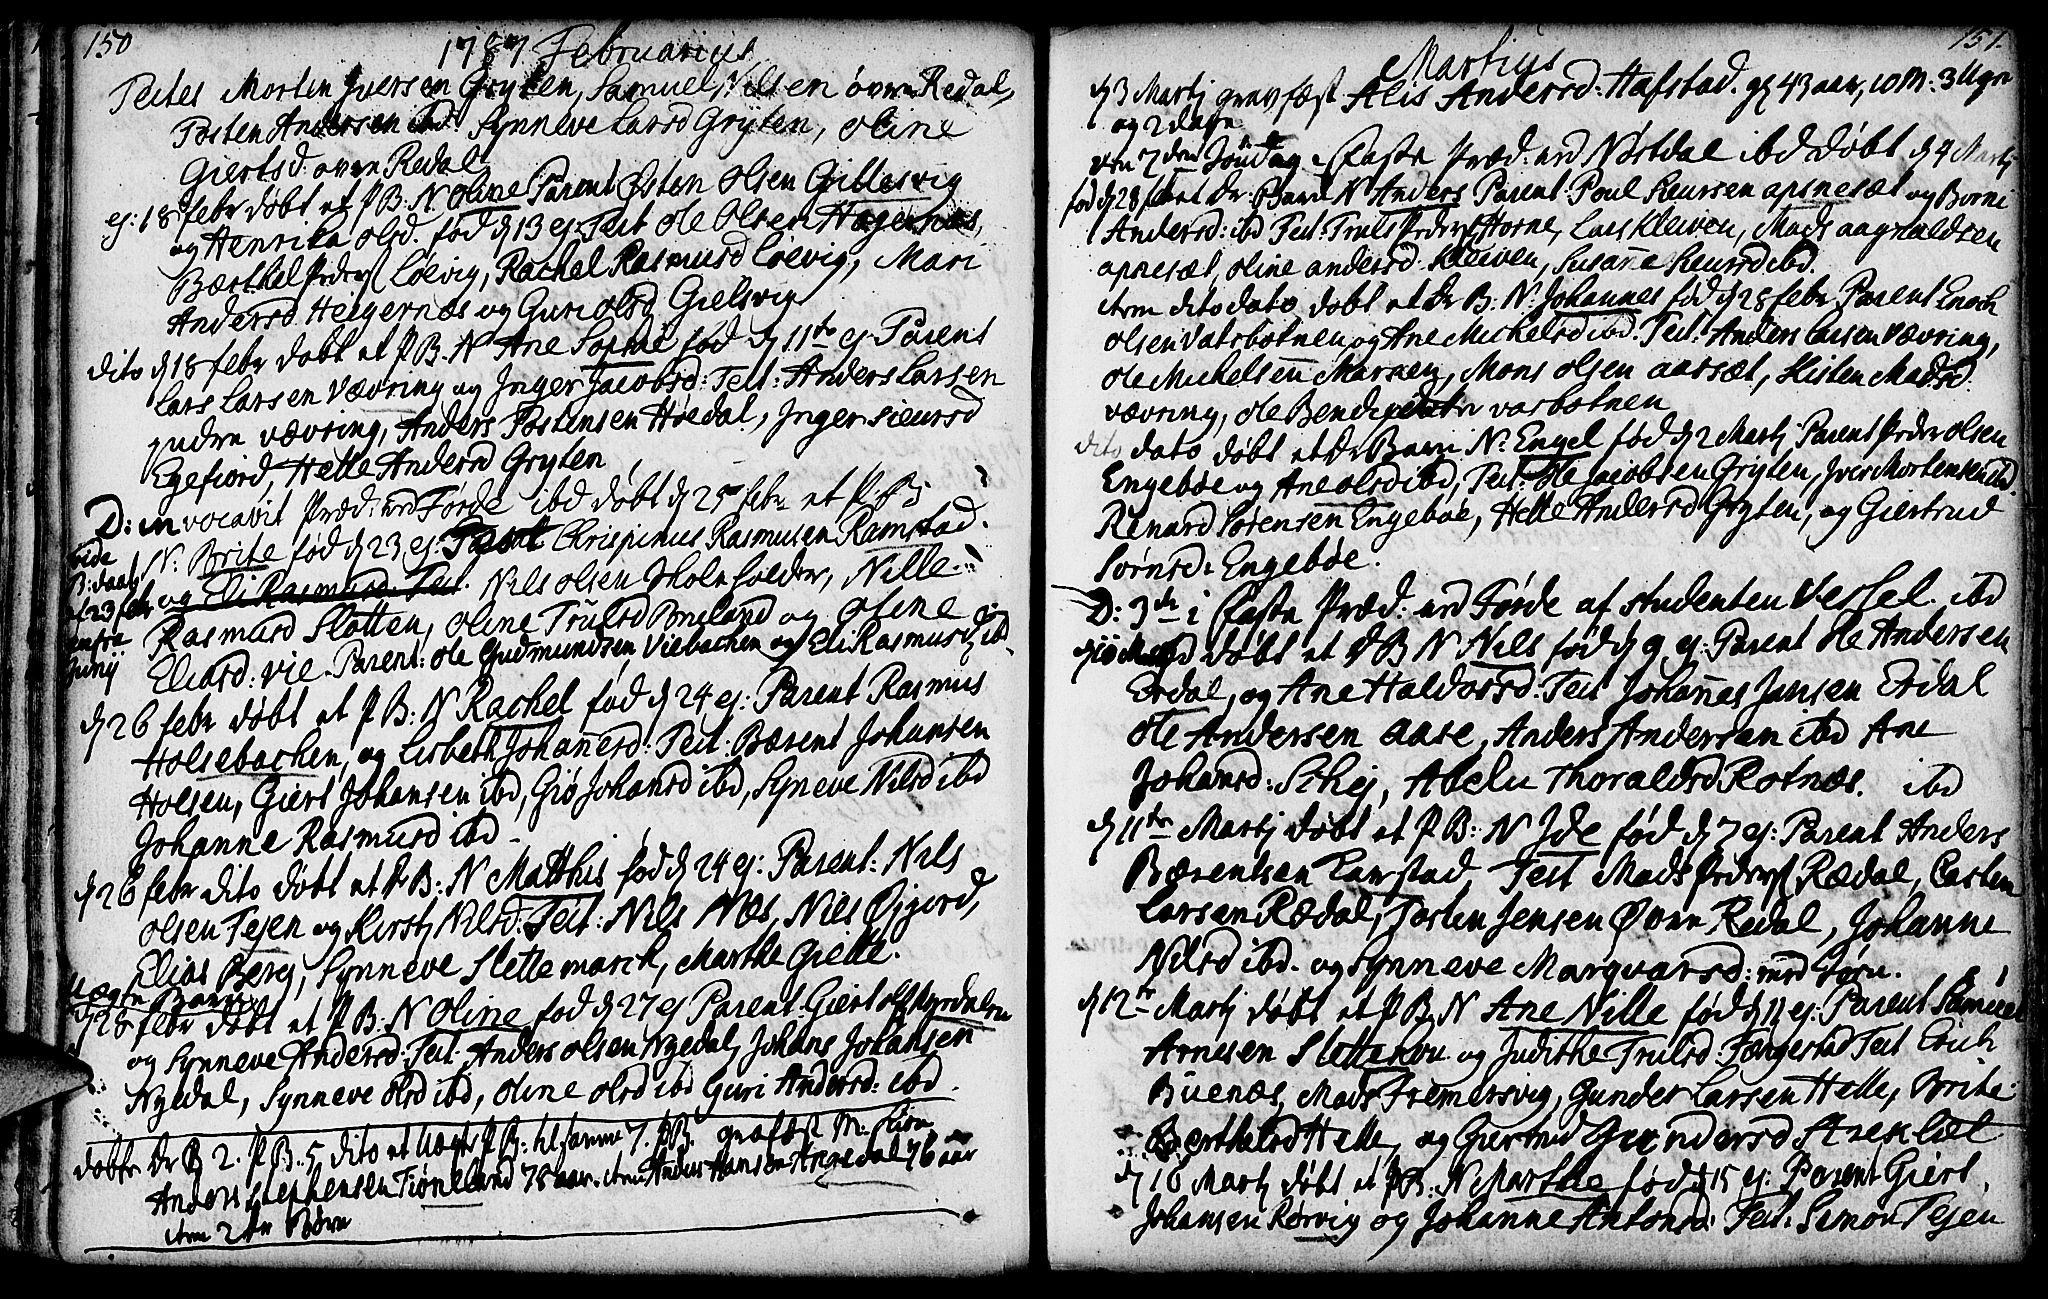 150
1787 Februarius
Testes Morten Iversen Gryten, Samuel Nilsen øvre Redal,
Tosten Andersen ibd. Synneve Larsd Gryten, Oline
Giertsd: øvre Redal
ej: 18 febr døbt et P B: N. Oline Parent Østen Olsen Gillesvig
og Henrika Olsd. fød d 13 ej: Test Ole Olsen Hegernæs,
Bærthel Peders Løevig, Rachel Rasmusd Løevig, Mari
Andersd Heggernæs og Guri Olsd Gielsvig
dito d 18 febr døbt et P B. N Ane Sophie fød d 11te ej. Parent
Lars Larsen Vævring og Inger Jacobsd: Test: Anders Larsen
yndre Vævring, Anders Tostensen Høedal, Inger Sieursd
Egefiord, Helle Andersd Gryten
D: invocavit Præd: ved Førde ibd døbt d 25 febr et P: B:
N: Brite fød d 23 ej: Parent Chrispinus Rasmusen Ramstad.
og Eli Rasmusd. Test. Nils Olsen Holefolder, Nille
Rasmusd Slotten, Oline Trulsd Broeland og Oline
Eliasd: Vie. Parent: Ole Gudmundsen Viebachen og Eli Rasmusd ibd.
d 26 febr døbt et P B: N Rachel fød d 24 ej: Parent Rasmus
Holsebachen, og Lisbeth Johanesd: Test: Bærent Johansen
Holsen, Giert Johansen ibd, Giø Johansd ibd, Synneve Nilsd ibd
Johanne Rasmusd ibd
d 26 febr dito døbt et P B: N Matthis fød d 24 ej: Parent: Nils
Olsen Tejen og Kirstj Nilsd. Test: Nils Næs, Nils Øjgord,
Elias Berg, Synneve Slettemarck, Marthe Gielle.
Uægte Barn
d 28 febr døbt et P B: N Oline fød d 27 ej Parent: Giert Ols Myrdalen
og Synneve Andersd: Test: Anders Olsen Nyedal, Johans Johansen
Nyedal, Synneve Olsd ibd, Oline Olsd ibd Guri Andersd: ibd.
døbte Dr B 2. P B. 5 dito et Uægte P B: tilsamme 7. P B.
Anders Stephensen Tiønneland 78 aar. item Anders Hansen Angedal 76 aar
item 2de Børn
151.
Martius
d 3 Martj gravfæst Alis Andersd: Hafstad. gl 43 aar, 10 M: 3 Uger
og 2 dage
den 2den Søndag i Faste Præd: ved Nøstdal ibd døbt d 4 Martj
fød d 28 febr et Dr: Barn N Anders Parent: Poul Siursen apnesæt og Borni
Andersd: ibd Test: Truls Peders Horne, Lars Kleiven, Mads aagnaldsen
apnesæt, Oline andersd Kleiven, Susanne Siursd ibd.
item dito dato døbt et Dr B. N. Johannes fød d 28 febr Parent Enoch
Olsen Vatsbotnen og Ane Michelsd ibd. Test: Anders Larsen Vævring,
Ole Michelsen Maraen, Mons Olsen aarsæt, Kisten Madsd.
vævring, Ole Bendix vasbotnen
dito dato døbt et Dr Barn N: Engel fød d 2 Martj Parent Peder Olsen
Engebøe og Ane Olsd ibd, Test: Ole Jacobsen Gryten, Iver Mortensen ibd.
Renard Sørensen Engebøe, Helle Andersd Gryten, og Giertrud
Sørnsd: Engebøe.
D: 3de i Faste Præd: ved Førde af studenten Vessel. ibd
døbt et P B N Nils fød d 9 ej: Parent Ole Andersen
Erdal, og Ane Haldorsd: Test Johannes Jansen Erdal
Ole Andersen Aase, Anders Andersen ibd Ane
Johansd: Schej, Abelu Thoraldsd Rotnæs. ibd
d 11te Martj døbt et P B: N Ide fød d 7 ej: Parent Anders
Bærentsen Lanstad, Test Mads Peders Rædal, Casten
Larsen Rædal, Tosten Jensen Øvre Redal, Johanne
Nilsd ibd. og Synneve Marqvarsd: ved Jøsn.
d 12te Martj døbt et P B N Ane Nille fød d 11 ej: Parent Samuel
Arnesen Slettenou og Judithe Trulsd: Færgestad Test Erich
Buenæs, Mads Fremersvig, Gunder Larsen Helle, Brite
Bærthelsd Helle, og Giertrud Gundersd Arexlæt
d 16 Martj døbt et P B: N Marthe fød d 15 ej: Parent Giert
Johansen Rørvig og Johanne Antonsd: Test: Simon Tejen